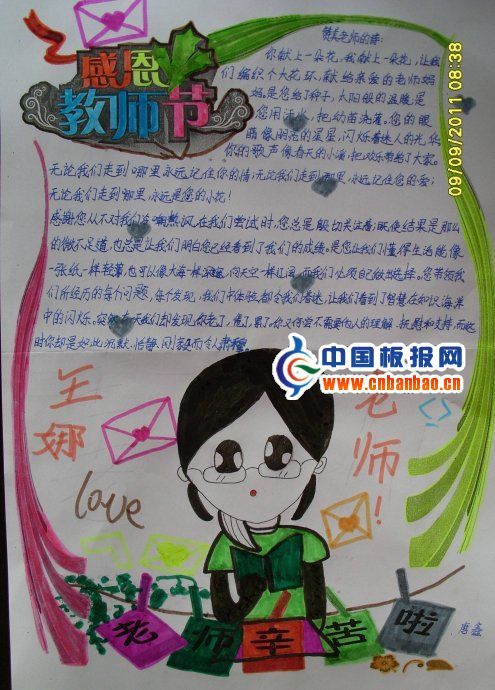 感恩
教师节
赞美老师的诗:
你献上一朵花,我献上一朵花,让我
们编织个大花环,献给亲爱的老师妈
妈。是您给了种子,太阳般的温暖是
您用活水,把幼苗浇灌。您的眼
睛像明亮的星星,闪烁着迷人的光华
你的歌声像春天的小溪,把欢乐带给了大家。
无论我们走到哪里,永远记住你的情;无论我们走到那里,永远记住您的爱;
无论我们走到哪里,永远是您的小花!
感谢您从不对我们,在我们尝试时,您总是殷切关注着;既使结果是那么
的微不足道,也总是让我们明白您已经看到了我们的成绩。是您让我们懂得生活能像
一张纸一样轻薄,也可以像大海一样深邃,向天空一样辽阔,而我们必须自己做出选择。您带领我
们所经历的每个问题,每个发现,我们中体验都令我们着迷,让我们看到了智慧在知识海洋
中的闪烁。有天我们却发现你老了,倦了,累了。你又何尝不需要他人的理解、抚慰和支持,而这
时你却是如此沉默、恬静、刚毅而令人肃穆。
中国板报网
www.cnbanbao.cn
王娜
老师!
love
老师辛苦啦
唐鑫
09/09/2011 08:38